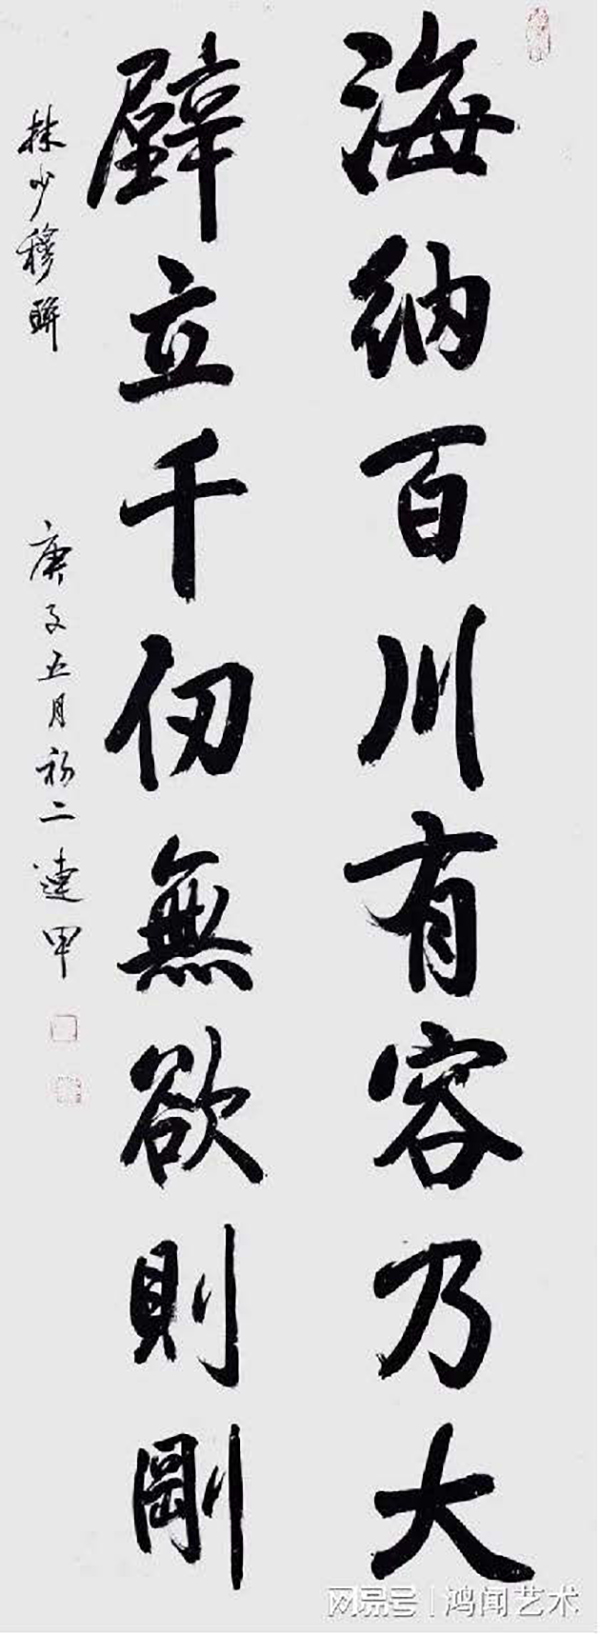 海納百川有容乃大
壁立千仞無欲則剛
林少穆聯
庚子五月初二連甲
网易号 | 鸿闻艺术